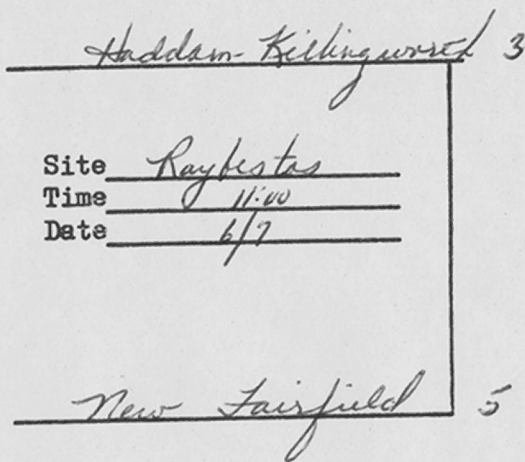 Haddam-Killingworth 3
Site Raybestos
Time 11:00
Date 6/7
New Fairfield 5